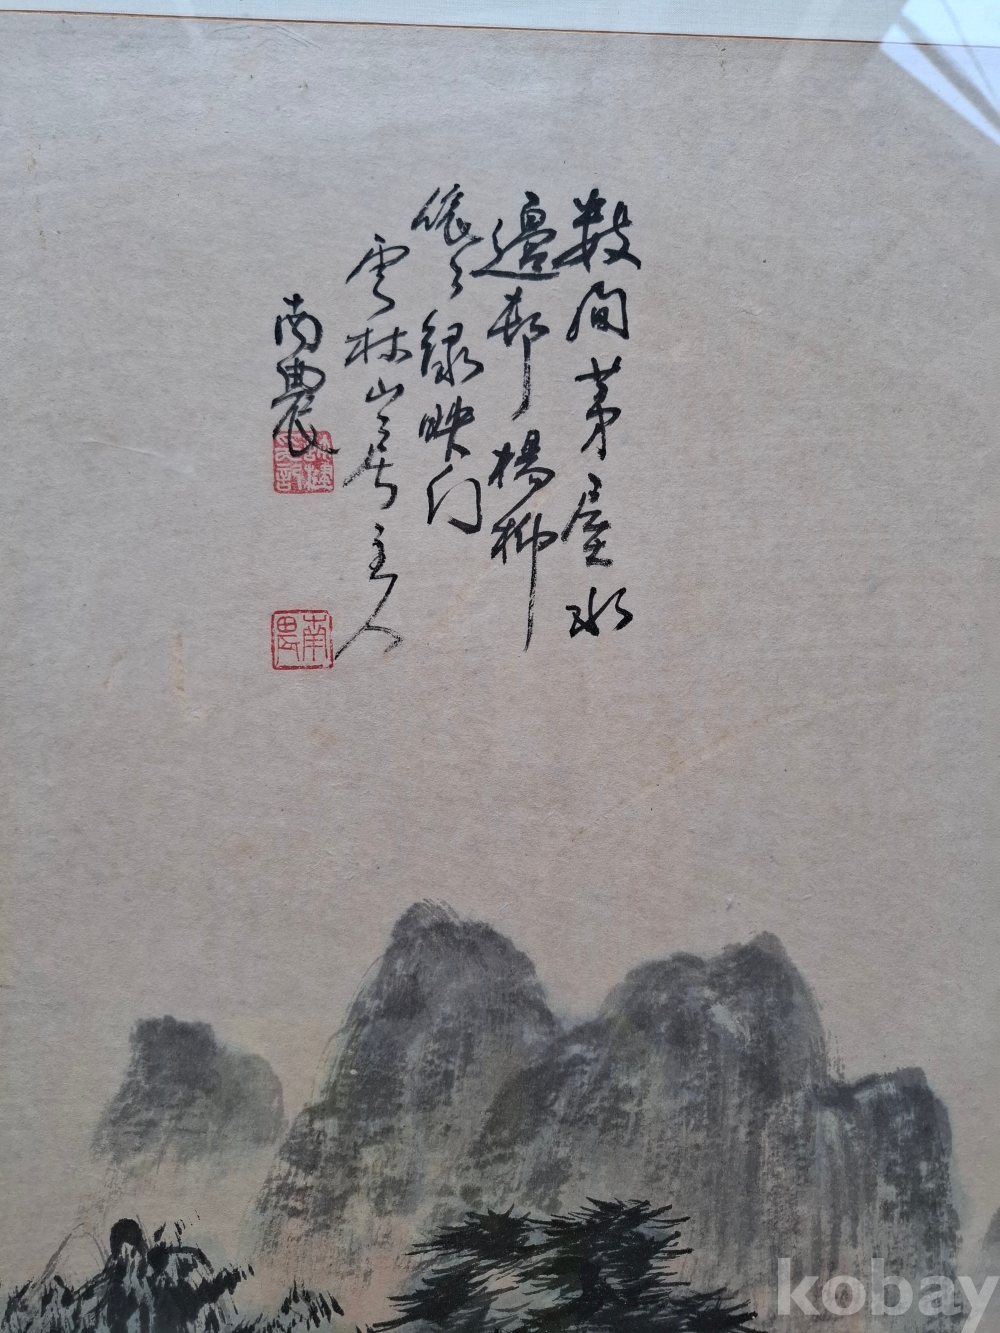 數間茅屋水
邊邨楊柳
依〻綠映門
雲林山居主人
南農
許楗
南農
kobay